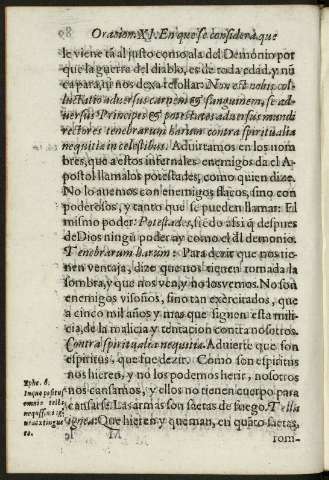 Oracion. XI. En que se considera que
le viene tā al justo como ala del Demonio por
que la guerra del diablo, es de toda edad, y nū
ca para, ni nos dexa resollar: Non est nobis col-
luctatio aduersus carnem & sanguinem, sed ad-
uersus Principes & potestates aduersus mundi
rectores tenebrarum harum contra spiritualia
nequitiæ in celestibus. Aduirtamos en los nom
bres, que a estos infernales enemigos da el A-
postol llamalos potestades, como quien dize.
No lo auemos con enemigos flacos, sino con
poderosos, y tanto que se pueden llamar: El
mismo poder: Potestades, siēdo assi q̄ despues
de Dios ningū poder ay como el dl demonio.
Tenebrarum harum: Para dezir que nos tie-
nen ventaja, dize que nos tienen tomada la
sombra, y que nos ven, y no los vemos. No son
enemigos visoños, sino tan exercitados, que
a cinco mil años y mas que siguen esta mili-
cia, de la malicia y tentacion contra nosotros.
Contra spiritualia nequitiæ. Aduierte que son
espiritus, que fue dezir. Como son espiritus
nos hieren, y no los podemos herir, nosotros
nos cansamos, y ellos no tienen cuerpo para
cansarse. Las armas son saetas de fuego. Tella
ignea: Que hieren y queman, en quāto saetas,
rom-
Ephe. 6.
In quo positus
omnia tella
nequissimi ig-
nea extingue
re.